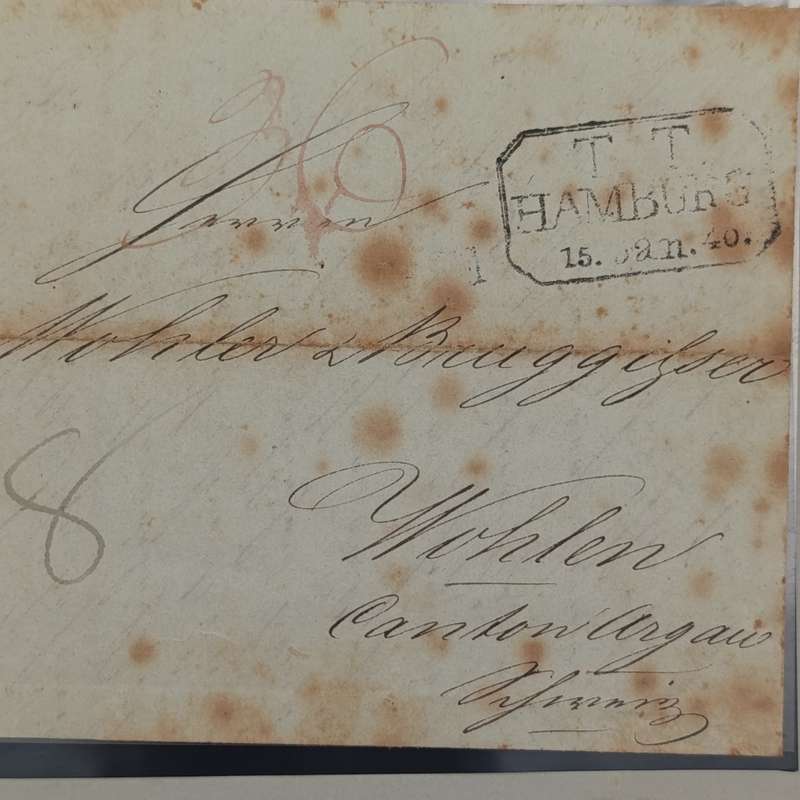 36
T T
HAMBURG
15. Jan. 40.
Herren
Wohler & Bruggisser
8
Wohlen
Canton Argau
Schweiz